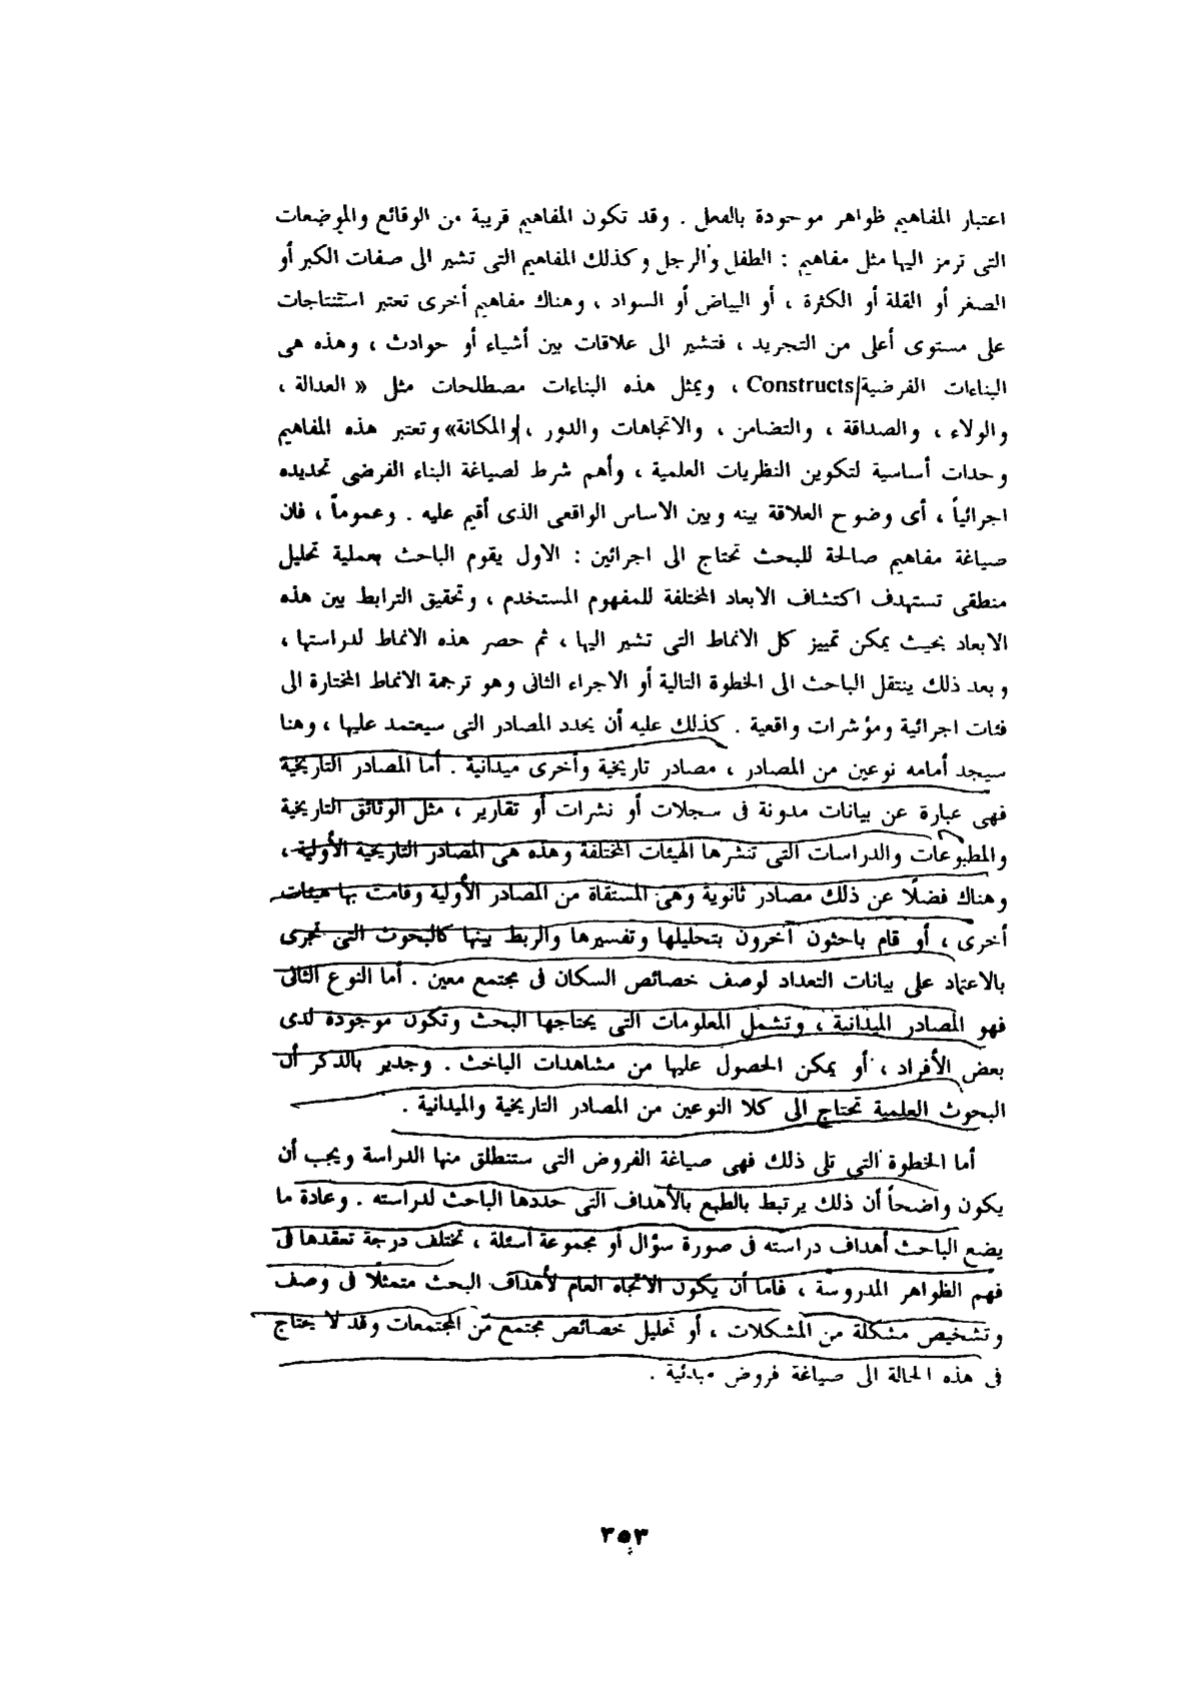 اعتبار المفاهيم ظواهر موجودة بالفعل . وقد تكون المفاهيم قريبة من الوقائع والموضعات
التى ترمز اليها مثل مفاهيم : الطفل والرجل وكذلك المفاهيم التى تشير الى صفات الكبر أو
الصغر أو القلة أو الكثرة ، أو البياض أو السواد ، وهناك مفاهيم أخرى تعتبر استنتاجات
على مستوى أعلى من التجريد ، فتشير الى علاقات بين أشياء أو حوادث ، وهذه هى
البناءات الفرضية Constructs ، ويمثل هذه البناءات مصطلحات مثل « العدالة ،
والولاء ، والصداقة ، والتضامن ، والاتجاهات والدور ، والمكانة» وتعتبر هذه المفاهيم
وحدات أساسية لتكوين النظريات العلمية ، وأهم شرط لصياغة البناء الفرضى تحديده
اجرائياً ، أى وضوح العلاقة بينه وبين الاساس الواقعى الذى أقيم عليه . وعموماً ، فان
صياغة مفاهيم صالحة للبحث تحتاج الى اجرائين : الاول يقوم الباحث بعملية تحليل
منطقى تستهدف اكتشاف الابعاد المختلفة للمفهوم المستخدم ، وتحقيق الترابط بين هذه
الابعاد بحيث يمكن تمييز كل الانماط التى تشير اليها ، ثم حصر هذه الانماط لدراستها ،
وبعد ذلك ينتقل الباحث الى الخطوة التالية أو الاجراء الثانى وهو ترجمة الانماط المختارة الى
فئات اجرائية ومؤشرات واقعية . كذلك عليه أن يحدد المصادر التى سيعتمد عليها ، وهنا
سيجد أمامه نوعين من المصادر ، مصادر تاريخية وأخرى ميدانية . أما المصادر التاريخية
فهى عبارة عن بيانات مدونة فى سجلات أو نشرات أو تقارير ، مثل الوثائق التاريخية
والمطبوعات والدراسات التى تنشرها الهيئات المختلفة وهذه هى المصادر التاريخية الأولية ،
وهناك فضلًا عن ذلك مصادر ثانوية وهى المستقاة من المصادر الأولية وقامت بها هيئات
أخرى ، أو قام باحثون آخرون بتحليلها وتفسيرها والربط بينها كالبحوث التى تجرى
بالاعتماد على بيانات التعداد لوصف خصائص السكان فى مجتمع معين . أما النوع الثانى
فهو المصادر الميدانية ، وتشمل المعلومات التى يحتاجها البحث وتكون موجودة لدى
بعض الأفراد ، أو يمكن الحصول عليها من مشاهدات الباخث . وجدير بالذكر أن
البحوث العلمية تحتاج الى كلا النوعين من المصادر التاريخية والميدانية .
أما الخطوة التى تلى ذلك فهى صياغة الفروض التى ستنطلق منها الدراسة ويجب أن
يكون واضحاً أن ذلك يرتبط بالطبع بالأهداف التى حددها الباحث لدراسته . وعادة ما
يضع الباحث أهداف دراسته فى صورة سؤال أو مجموعة أسئلة ، تختلف درجة تعقدها فى
فهم الظواهر المدروسة ، فاما أن يكون الاتجاه العام لأهداف البحث متمثلًا فى وصف
وتشخيص مشكلة من المشكلات ، أو تحليل خصائص مجتمع من المجتمعات وقد لا يحتاج
فى هذه الحالة الى صياغة فروض مبدئية .
٣٥٣